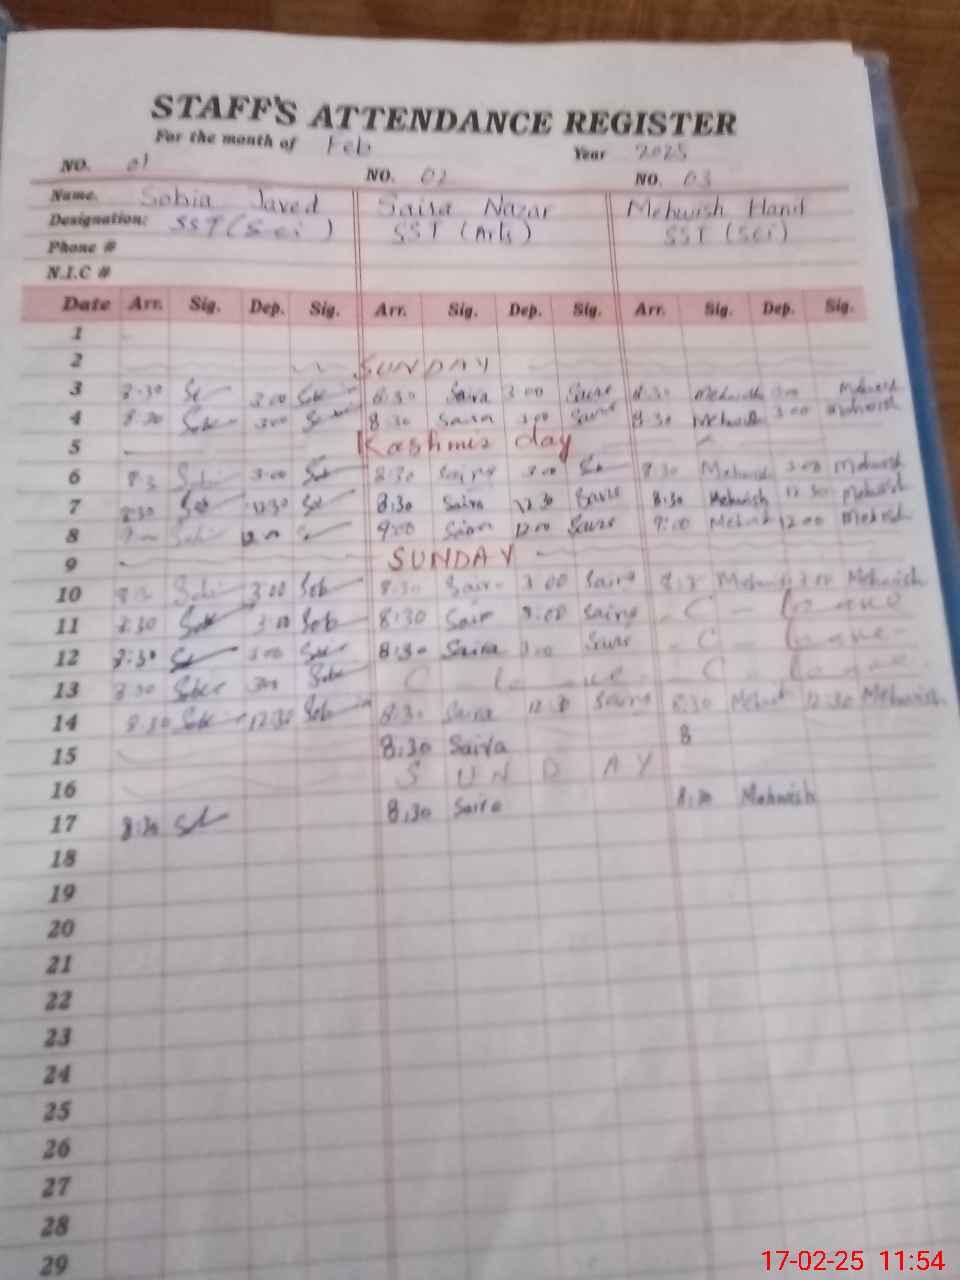 STAFF'S ATTENDANCE REGISTER
For the month of Feb Year 2025
NO. 01 NO. 02 NO. 03
Name. Sobia Javed Saira Nazar Mehwish Hanif
Designation: SST (Sci) SST (Arts) SST (Sci)
Phone #
N.I.C #
Date Arr. Sig. Dep. Sig. Arr. Sig. Dep. Sig. Arr. Sig. Dep. Sig.
1
2 SUNDAY
3 8:30 3 00 8:30 Saira 3 00 8:30 Mehwish 3 00 Mehwish
4 8:30 3 00 8:30 Saira 3 00 8:30 Mehwish 3 00 Mehwish
5 Kashmir day
6 3:00 8:30 Saira 3 00 8:30 Mehwish 3 00 Mehwish
7 8:30 Sob 12:30 8:30 Saira 12 30 8:30 Mehwish 12 30 Mehwish
8 9:00 Saira 12 00 9:00 Mehwish 12 00 Mehwish
9 SUNDAY
10 3 00 Sob 8:30 Saira 3 00 Saira Mehwish 3 00 Mehwish
11 8:30 3 00 Sob 8:30 Sair 3:00 Saira C - leave
12 8:30 3 00 8:30 Saira C - leave
13 8:30 C - leave C - leave
14 8:30 12:30 Sob 8:30 Saira 8:30 12:30 Mehwish
15 8:30 Saira 8
16 SUNDAY
17 8:30 8:30 Saira 8:30 Mehwish
18
19
20
21
22
23
24
25
26
27
28
29
17-02-25 11:54